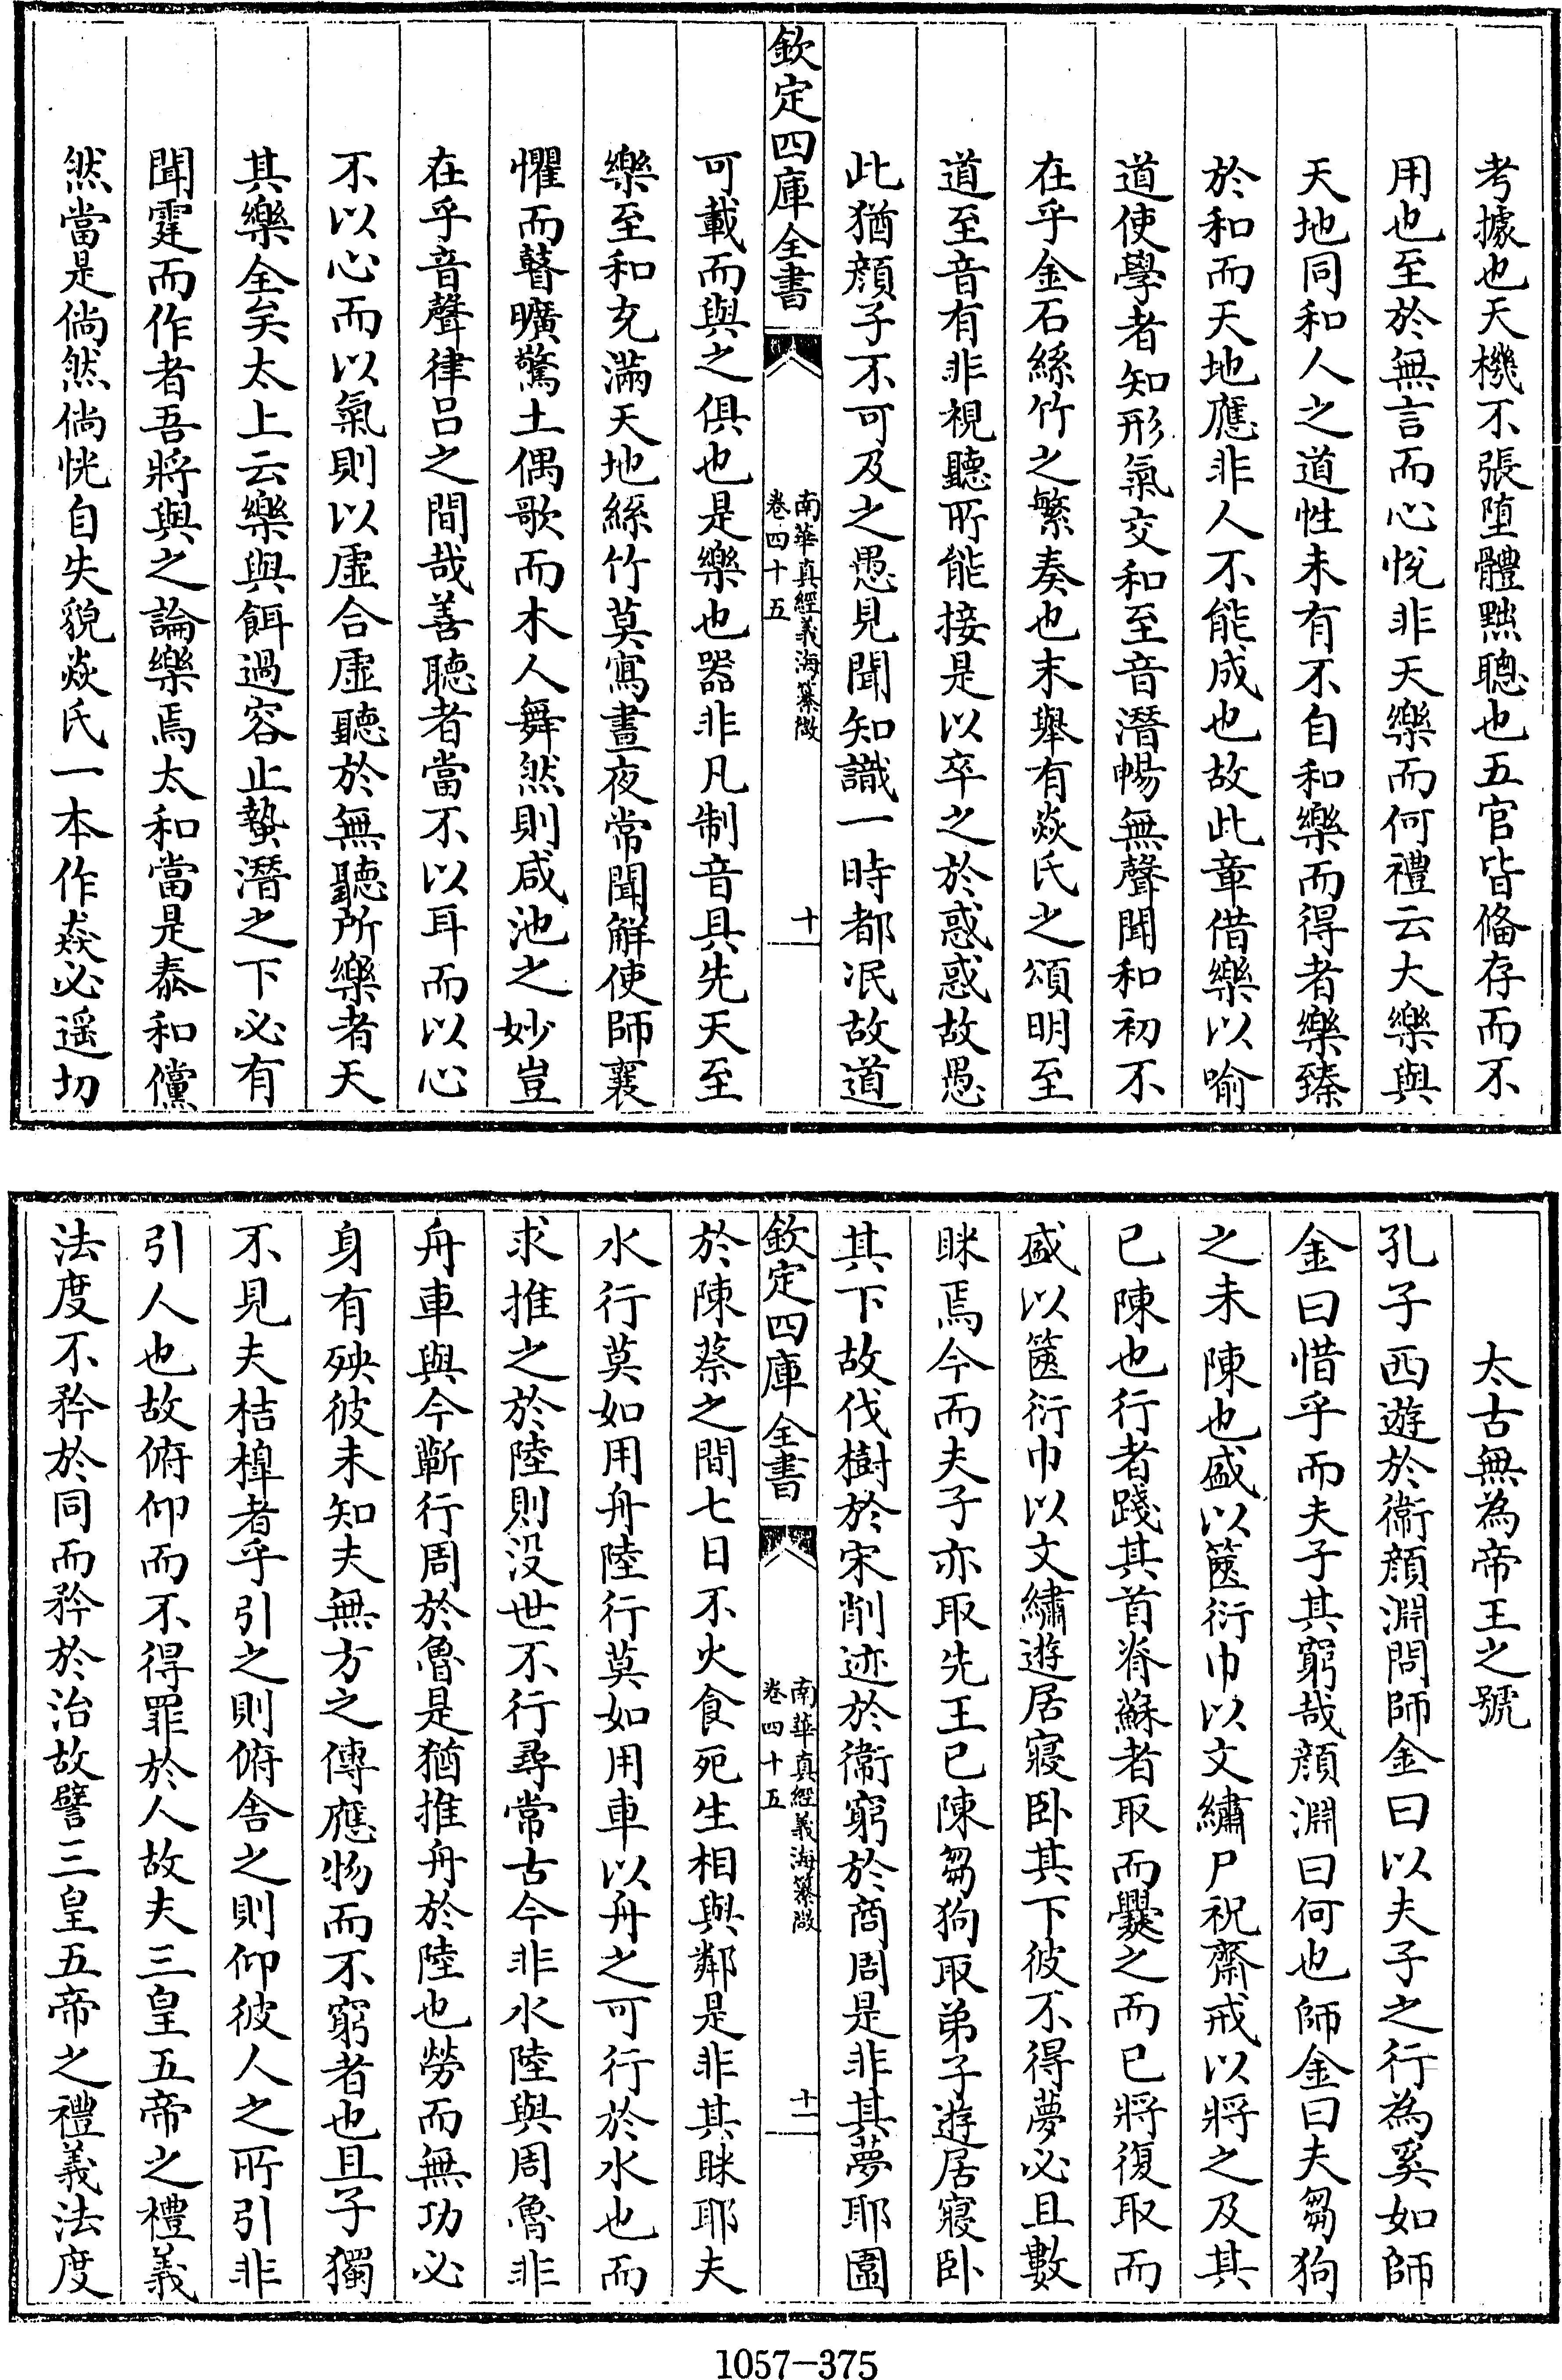 考據也天機不張墮體黜聰也五官皆備存而不
用也至於無言而心悅非天樂而何禮云大樂與
天地同和人之道性未有不自和樂而得者樂臻
於和而天地應非人不能成也故此章借樂以喻
道使學者知形氣交和至音潛暢無聲聞和初不
在乎金石絲竹之繁奏也末舉有焱氏之頌明至
道至音有非視聽所能接是以卒之於惑惑故愚
此猶顔子不可及之愚見聞知識一時都冺故道
欽定四庫全書
南華真經義海纂微
卷四十五
十
可載而與之俱也是樂也器非凡制音具先天至
樂至和充滿天地絲竹莫寫晝夜常聞解使師襄
懼而瞽曠驚土偶歌而木人舞然則咸池之妙豈
在乎音聲律呂之間哉善聽者當不以耳而以心
不以心而以氣則以虛合虛聽於無聽所樂者天
其樂全矣太上云樂與餌過容止蟄潛之下必有
聞霆而作者吾將與之論樂焉太和當是泰和儻
然當是倘然倘恍自失貌焱氏一本作猋必遥切
太古無為帝王之號
孔子西遊於衞顔淵問師金曰以夫子之行為奚如師
金曰惜乎而夫子其窮哉顔淵曰何也師金曰夫芻狗
之未陳也盛以篋衍巾以文繡尸祝齋戒以將之及其
已陳也行者踐其首脊蘇者取而爨之而已將復取而
盛以篋衍巾以文繡遊居寢卧其下彼不得夢必且數
眯焉今而夫子亦取先王已陳芻狗取弟子遊居寢卧
其下故伐樹於宋削迹於衞窮於商周是非其夢耶圍
欽定四庫全書
南華真經義海纂微
卷四十五
十一
於陳蔡之間七日不火食死生相與鄰是非其眯耶夫
水行莫如用舟陸行莫如用車以舟之可行於水也而
求推之於陸則没世不行尋常古今非水陸與周魯非
舟車與今蘄行周於魯是猶推舟於陸也勞而無功必
身有殃彼未知夫無方之傳應物而不窮者也且子獨
不見夫桔槹者乎引之則俯舍之則仰彼人之所引非
引人也故俯仰而不得罪於人故夫三皇五帝之禮義
法度不矜於同而矜於治故譬三皇五帝之禮義法度
1057-375